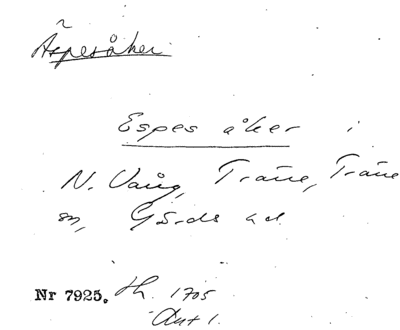 Äspesåker
Espes åker i
N. Vång, Träne, Träne
sn, Gärds hd
Nr 7925. Lh. 1705
Ant 1.